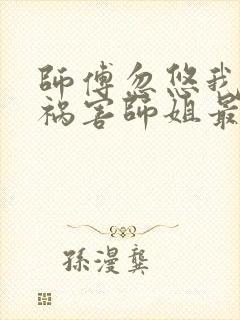 師傅忽悠我
禍害師姐最
孫漫龔